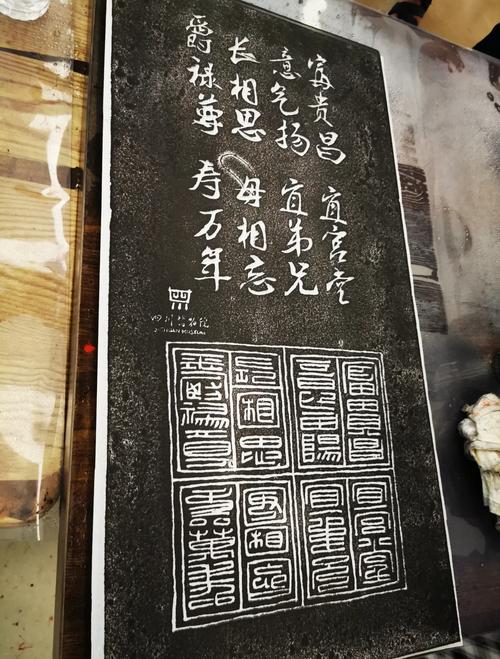 富贵昌 宜宫堂
意气扬 宜弟兄
长相思 毋相忘
爵禄尊 寿万年
四川博物院
SICHUAN MUSEUM
富貴昌 宜宮堂
意氣陽 宜弟兄
長相思 毋相忘
爵祿尊 壽萬年